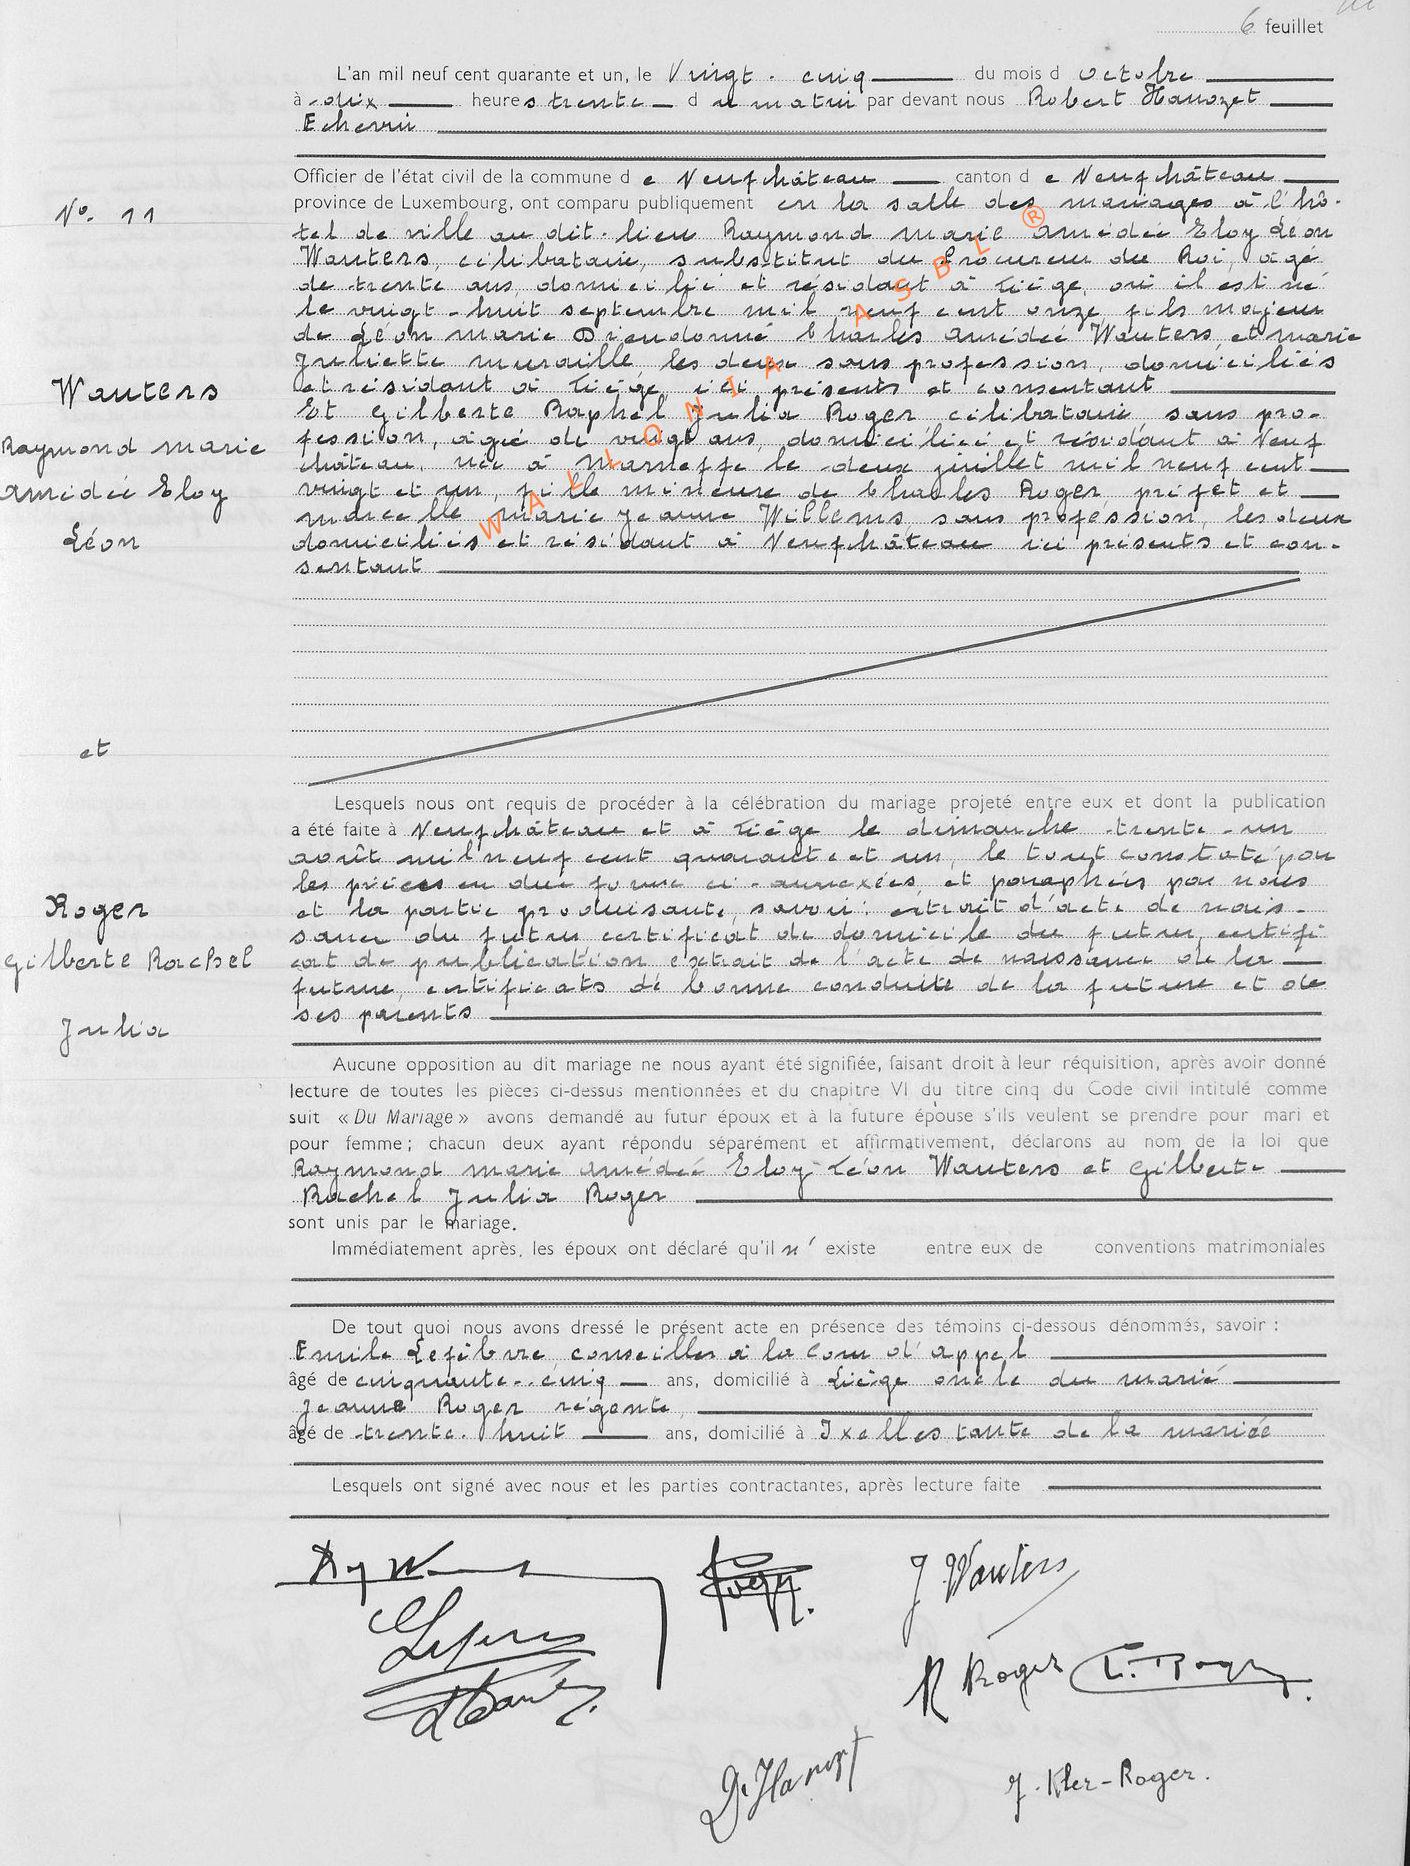 6 feuillet
L'an mil neuf cent quarante et un, le Vingt-cinq du mois d octobre
à dix heures trente du matin par devant nous Robert Hanozet
Echevin
Officier de l'état civil de la commune de Neufchâteau canton de Neufchâteau
province de Luxembourg, ont comparu publiquement en la salle des mariages à l'hô-
tel de ville au dit-lieu Raymond Marie Amédée Eloy Léon
Wauters, célibataire, substitut du Procureur du Roi, âgé
de trente ans, domicilié et résidant à Liége, où il est né
le vingt-huit septembre mil neuf cent onze, fils majeur
de Léon Marie Dieudonné Charles Amédée Wauters, et Marie
Juliette Muraille, les deux sans profession, domiciliés
et résidant à Liége, ici présents et consentant
Et Gilberte Raphel Julia Roger célibataire sans pro-
fession, agée de vingt ans, domiciliée et résidant à Neuf
château, née à Marneffe le deux juillet mil neuf cent
vingt et un, fille mineure de Charles Roger, préfet et
Marcelle Marie Jeanne Willems, sans profession, les deux
domiciliés et résidant à Neufchâteau ici présents et con-
sentant
N°. 11
Wauters
Raymond Marie
Amédée Eloy
Léon
et
Roger
Gilberte Rachel
Julia
WALLONIA ASBL ®
Lesquels nous ont requis de procéder à la célébration du mariage projeté entre eux et dont la publication
a été faite à Neufchâteau et à Liége le dimanche trente-un
août mil neuf cent quarante et un, le tout constaté par
les pièces en due forme ci-annexées, et paraphées par nous
et la partie produisante, savoir: extrait d'acte de nais-
sance du futur, certificat de domicile du futur, certifi
cat de publication extrait de l'acte de naissance de la
future, certificats de bonne conduite de la future et de
ses parents
Aucune opposition au dit mariage ne nous ayant été signifiée, faisant droit à leur réquisition, après avoir donné
lecture de toutes les pièces ci-dessus mentionnées et du chapitre VI du titre cinq du Code civil intitulé comme
suit « Du Mariage » avons demandé au futur époux et à la future épouse s'ils veulent se prendre pour mari et
pour femme; chacun deux ayant répondu séparément et affirmativement, déclarons au nom de la loi que
Raymond Marie Amédée Eloy Léon Wauters et Gilberte
Rachel Julia Roger
sont unis par le mariage.
Immédiatement après, les époux ont déclaré qu'il n' existe entre eux de conventions matrimoniales
De tout quoi nous avons dressé le présent acte en présence des témoins ci-dessous dénommés, savoir :
Emile Lefèbvre, conseiller à la Cour d'appel
âgé de cinquante-cinq ans, domicilié à Liége oncle du marié
Jeanne Roger régente,
âgé de trente-huit ans, domicilié à Ixelles tante de la mariée
Lesquels ont signé avec nous et les parties contractantes, après lecture faite
J Wauters
M Roger
J. Kler-Roger.